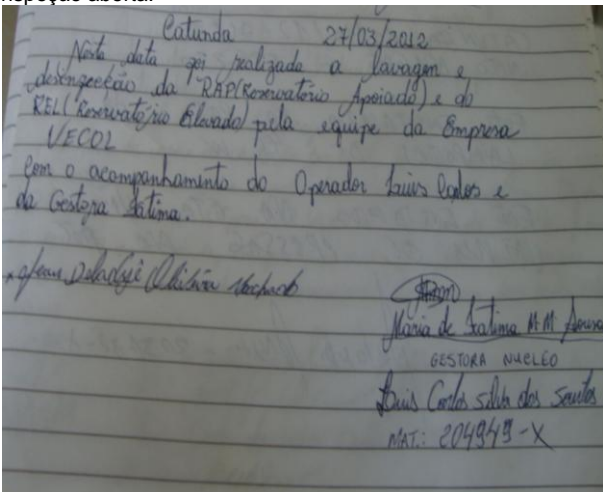 nspeção aberta.
Catunda 27/03/2012
Nesta data foi realizada a lavagem e
desinfecção da RAP(Reservatório Apoiado) e do
REL(Reservatório Elevado) pela equipe da Empresa
VECOL
Com o acompanhamento do Operador Luis Carlos e
da Gestora Fátima.
Oliveira Machado
Maria de Fatima M M Sousa
GESTORA NUCLEO
Luis Carlos silva dos Santos
MAT.: 204949-X